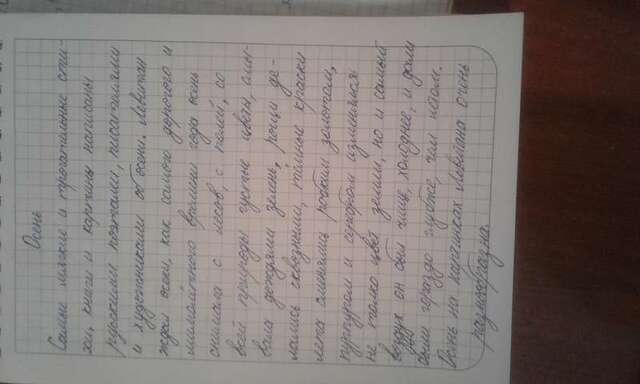 Осень
Самые мягкие и трогательные сти-
хи, книги и картины написаны
рускими поэтами, писателями
и художниками об осени. Левитан
ждал осени, как самого дорогого и
мимолётного времени года осень
снимала с лесов, с полей, со
всей природы густые цвета, смы-
вала дождями зелень, рощи де-
лались сквозными, тёмные краски
лета сменялись робким золотом,
пурпуром и серебром изменялся
не толко цвет земли, но и самый
воздух он был чище, холоднее, и дали
были гораздо глубже, чем летом.
Осень на картинках Левитана очень
разнообразна.